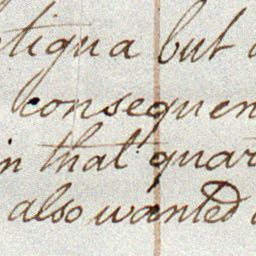 tigua but
consequen
in that quar
also wanted